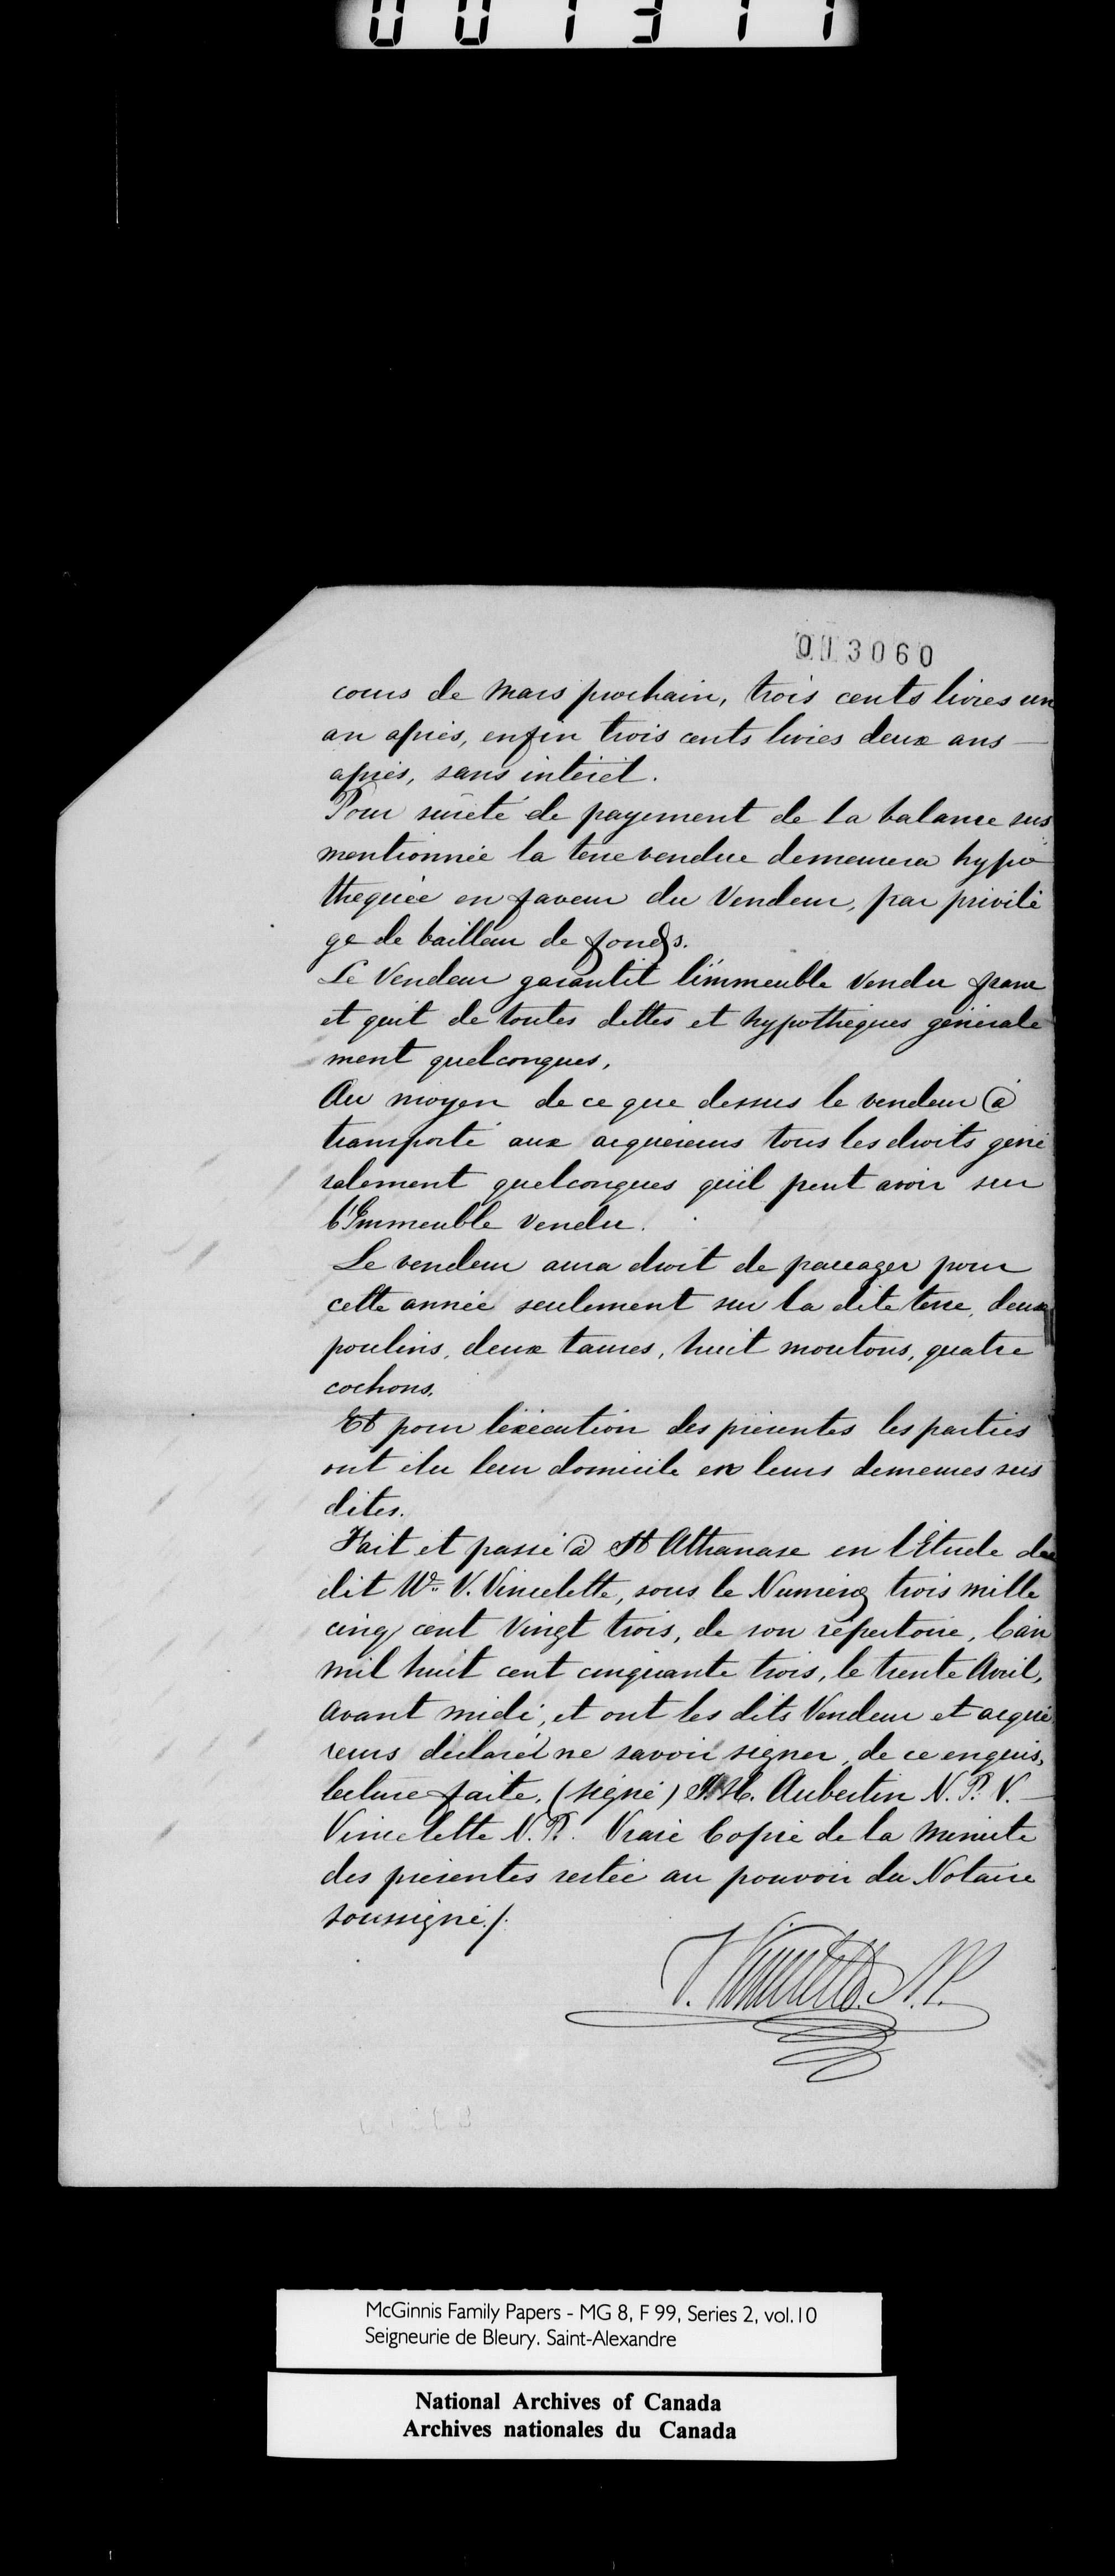 001311
013060
cours de Mars prochain, trois cents livres un
an après, enfin trois cents livres deux ans —
après, sans intérêt.
Pour sureté de payement de la balance sus
mentionnée la terre vendue demeurera hypo
thequée en faveur du Vendeur, par privilè
ge de bailleur de fonds.
Le Vendeur garantit l'immeuble vendu franc
et quit de toutes dettes et hypothèques générale
ment quelconques.
Au moyen de ce que dessus le vendeur à
transporté aux acquereurs tous les droits géné
ralement quelconques qu'il peut avoir sur
l'Immeuble vendu.
Le vendeur aura droit de paccager pour
cette année seulement sur la dite terre, deux
poulins, deux taures, huit moutons, quatre
cochons.
Et pour l'exécution des présentes les parties
ont élu leur domicile en leurs demeures sus
dites.
Fait et passé à St Athanase en l'Étude du
dit Wm. V. Vincelette, sous le Numéro trois mille
cinq cent Vingt trois, de son répertoire, l'an
mil huit cent cinquante trois, le trente Avril,
avant midi, et ont les dits Vendeur et acqué
reurs déclaré ne savoir signer, de ce enquis,
lecture faite. (signé) H. Aubertin N. P. V. —
Vincelette N. P. Vraie Copie de la Minute
des présentes restée au pouvoir du Notaire
soussigné./.
V. Vincelette. N.P.
McGinnis Family Papers - MG 8, F 99, Series 2, vol.10
Seigneurie de Bleury. Saint-Alexandre
National Archives of Canada
Archives nationales du Canada